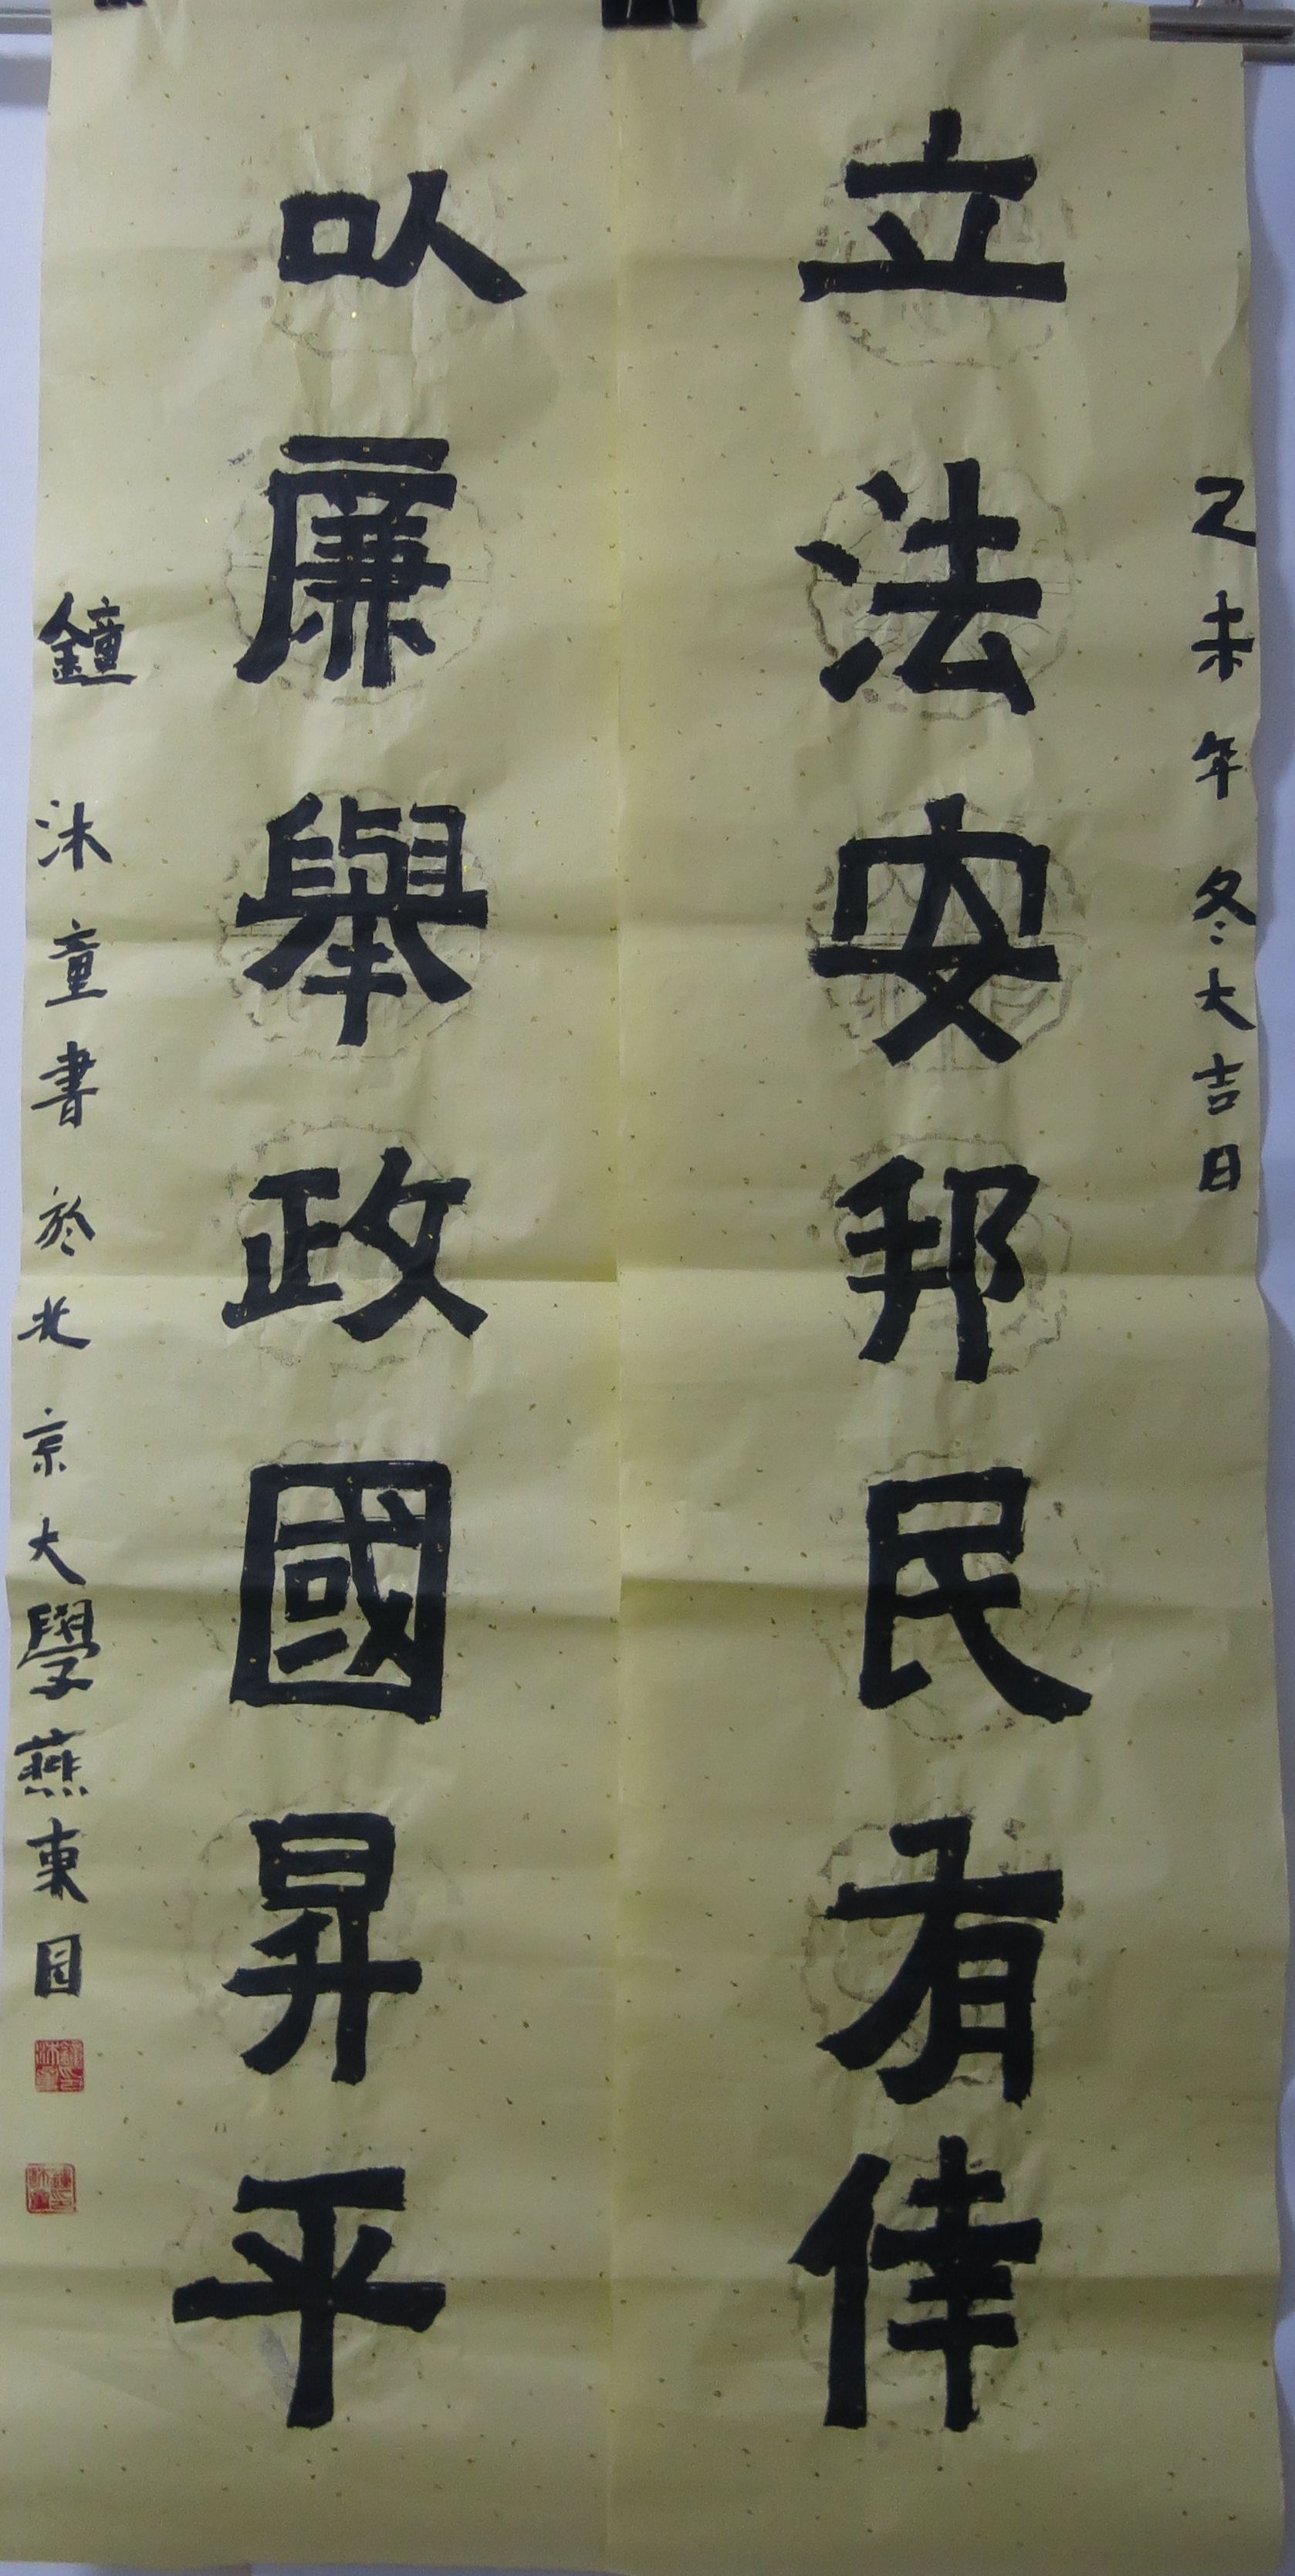 乙未年冬大吉日
立法安邦民有倖
以廉舉政國昇平
鐘沐童書於北京大學燕東园